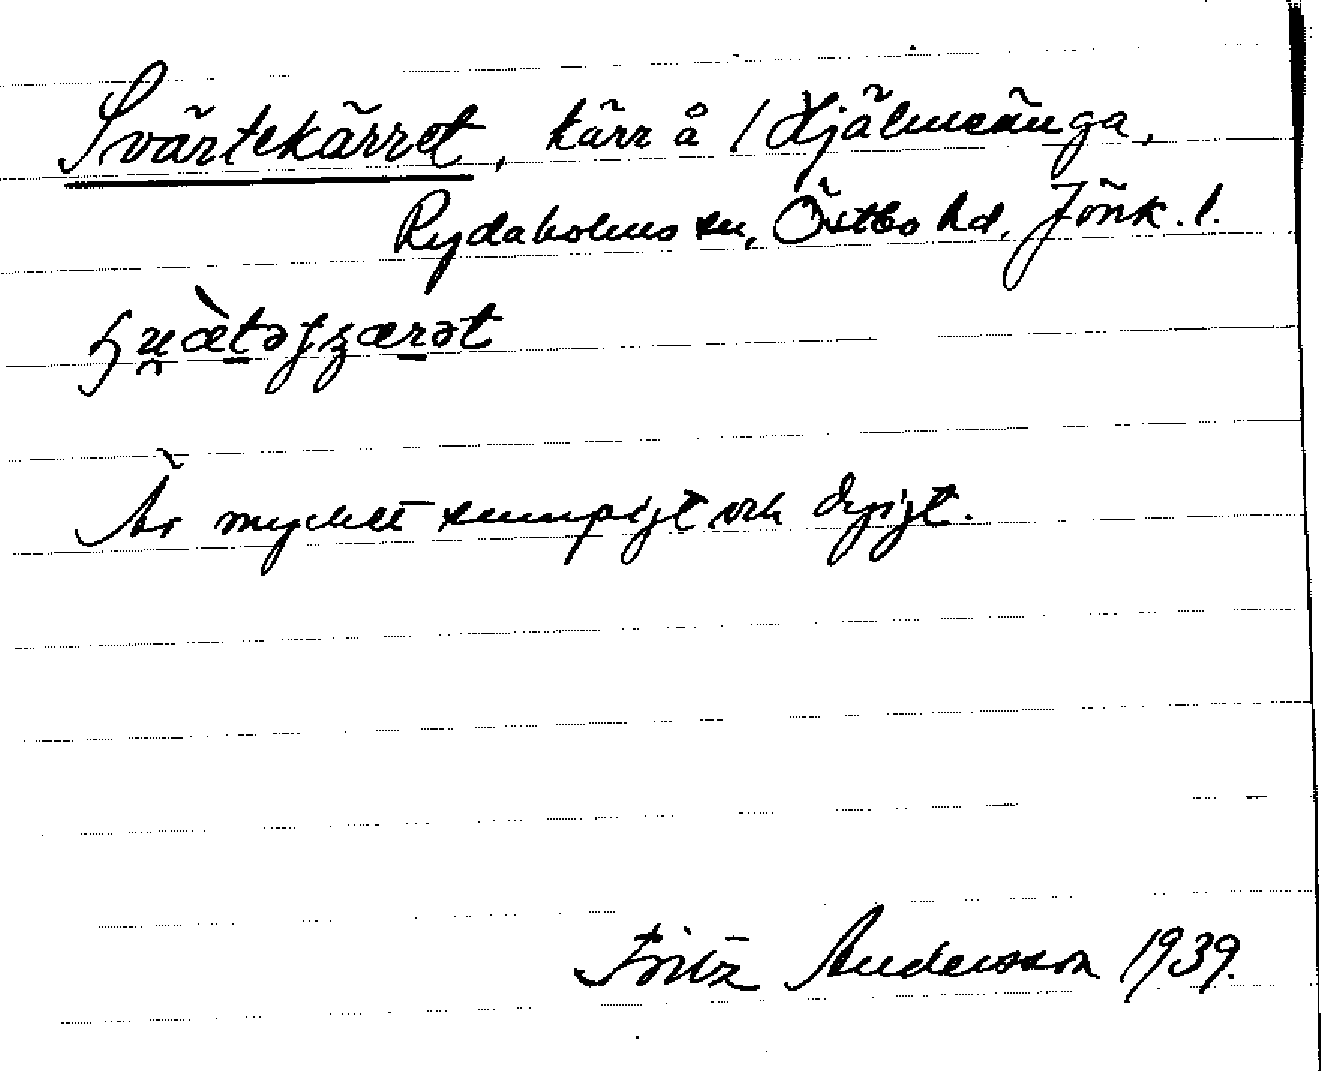 Svärtekärret, kärr å / Hjälmänga,
Rydaholms sn, Östbo hd, Jönk. l.
Är mycket sumpigt och dyigt.
Fritz Andersson 1939.